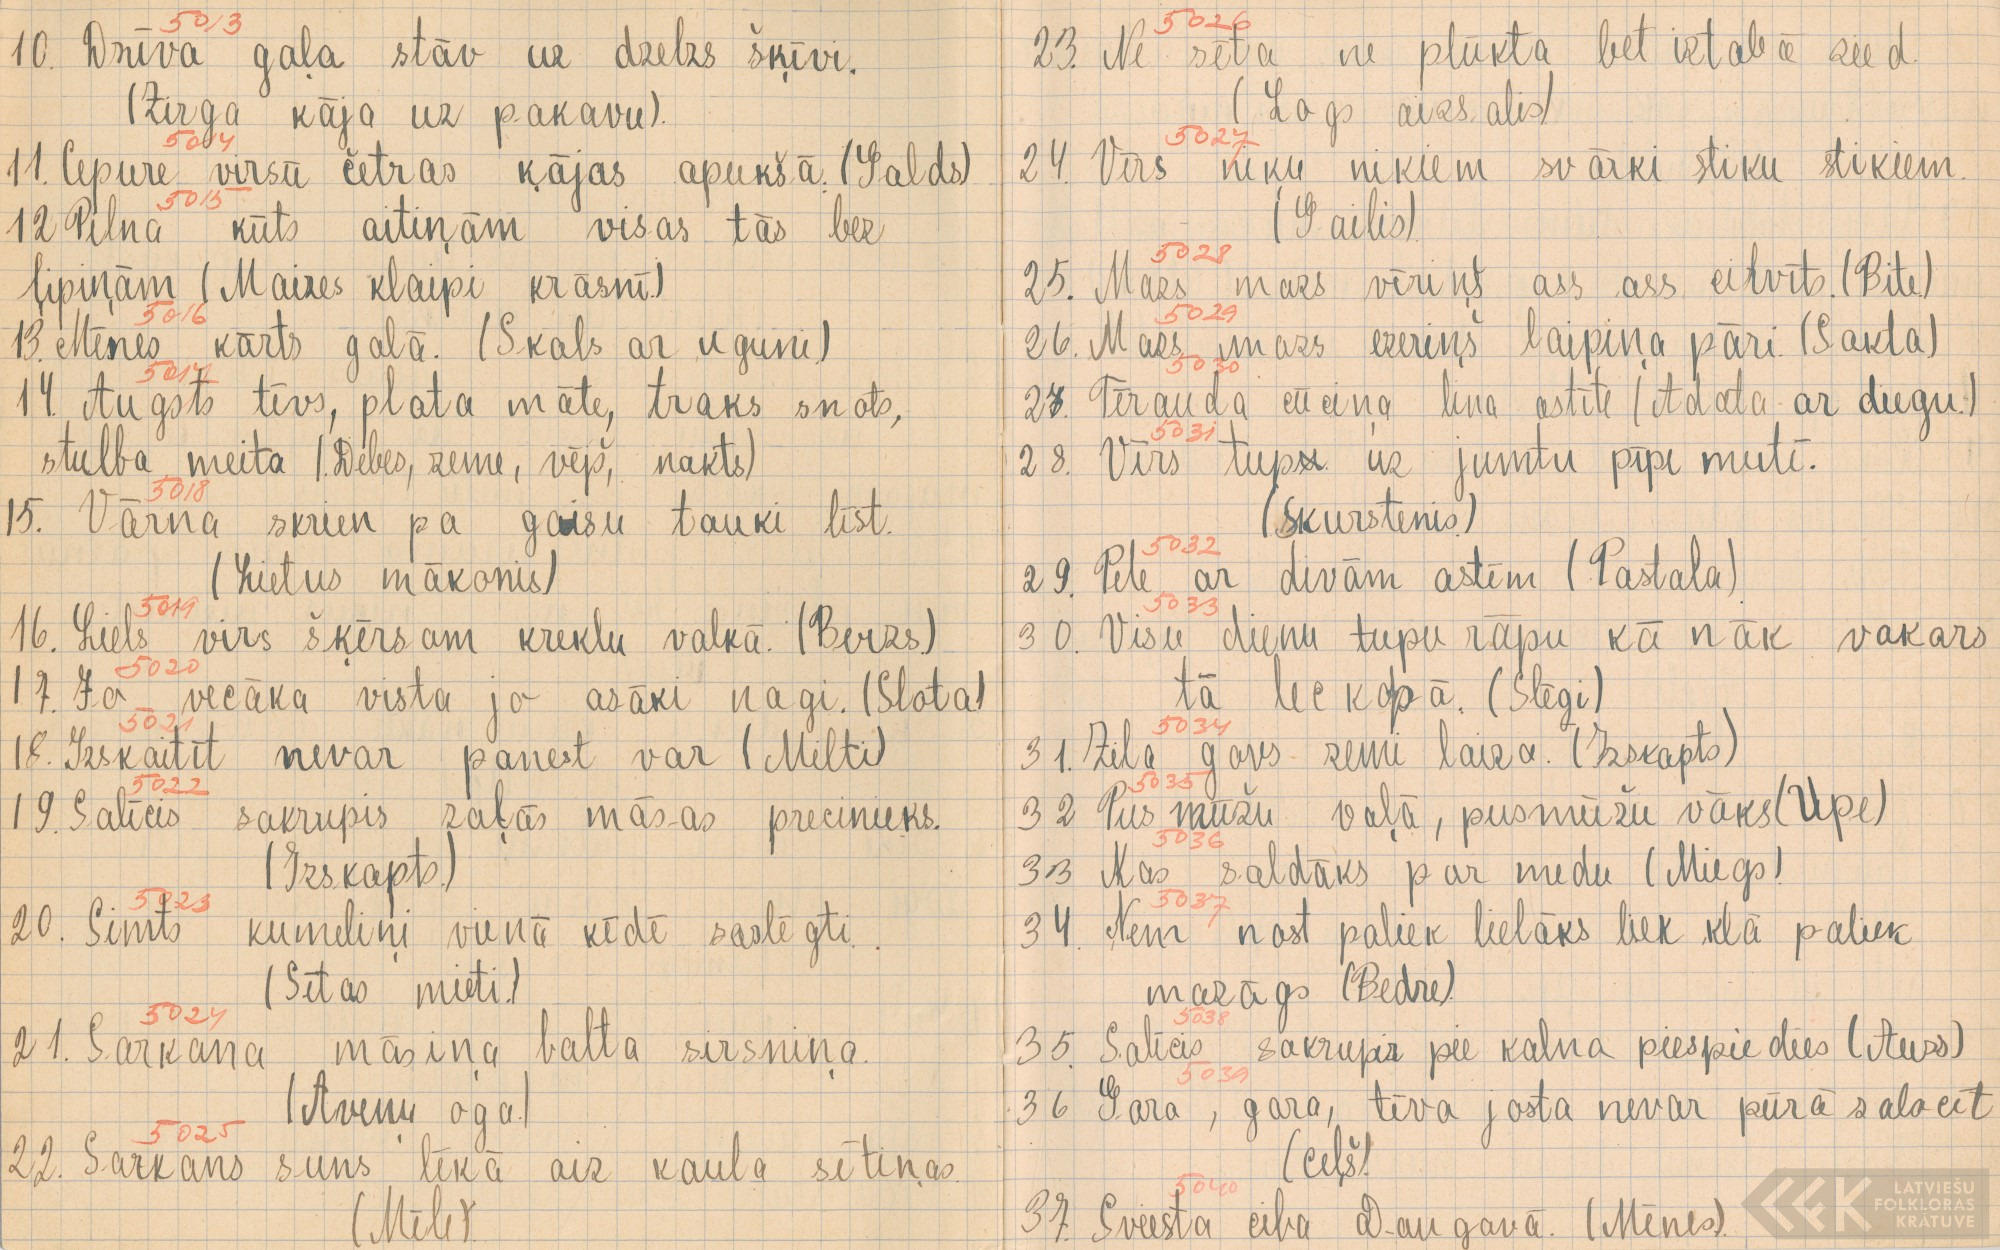 5013
10. Dzīva gaļa stāv uz dzelzs šķīvi.
(Zirga kāja uz pakavu).
5014
11. Cepure virsū četras kājas apukšā. (Galds)
5015
12 Pilna kūts aitiņām visas tās bez
ļipiņām (Maizes klaipi krāsnī.)
5016
13. Mēnes kārts galā. (Skals ar uguni)
5017
14. Augsts tēvs, plata māte, traks snots,
stulba meita (Debes, zeme, vējš, nakts)
5018
15. Vārna skrien pa gaisu tauki līst.
(Lietus mākonis)
5019
16. Liels virs šķērsam kreklu valkā. (Berzs)
5020
17. Jo vecāka vista jo asāki nagi. (Slota)
5021
18. Izskaitīt nevar panest var (Milti)
5022
19. Salīcis sakrupis zaļās māsas precinieks.
(Izskapts.)
5023
20. Simts kumeliņi vienā ķēdē saslēgti.
(Sētas mieti.)
5024
21. Sarkana māsiņa balta sirsniņa.
(Aveņu oga.)
5025
22. Sarkans suns lēkā aiz kaula sētiņas.
(Mēle)
5026
23. Ne sēta ne plūkta bet iztabā zied.
(Logs aizsalis)
5027
24. Vīrs ņiku ņikiem svārki stiku stikiem.
(Gailis)
5028
25. Mazs mazs vīriņš ass ass cirvīts. (Bite)
5029
26. Mazs mazs ezeriņš laipiņa pāri. (Sakta)
5030
27. Tērauda cūciņa lina astīte (Adata ar diegu.)
5031
28. Vīrs tup uz jumtu pīpi mutī.
(Skurstenis.)
5032
29. Pele ar divām astēm (Pastala)
5033
30. Visu dienu tupu rāpu kā nāk vakars
tā lec kopā. (Slēgi)
5034
31. Zila govs zemi laiza. (Izskapts)
5035
32 Pus mūžu vaļā, pusmūžu vāks (Upe)
5036
33 Kas saldāks par medu (Miegs)
5037
34. Nem nost paliek lielāks liek klā paliek
mazāgs (Bedre)
5038
35. Salīcis sakrupis pie kalna piespiedies (Auss)
5039
36 Gara, gara, tēva josta nevar pūrā salocīt
(Ceļš)
5040
37. Sviesta ciba Daugavā. (Mēnes).
LATVIEŠU
FOLKLORAS
KRĀTUVE